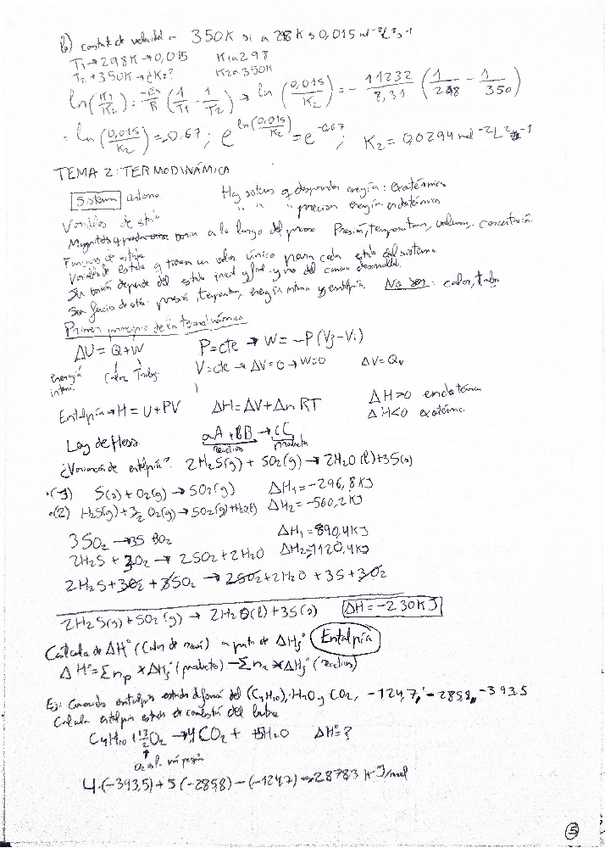 b) constante de velocidad a 350K si a 298K es 0,015 mol⁻²L²s⁻¹
T₁→298K→0,015 K₁a298
T₂→350K→¿K₂? K₂a350K
ln(K₁/K₂) = -Ea/R (1/T₁ - 1/T₂) → ln(0,015/K₂) = - 11232/8,31 (1/298 - 1/350)
= ln(0,015/K₂) = -0.67; e^ln(0,015/K₂) = e^-0.67; K₂ = 0,0294 mol⁻²L²s⁻¹
TEMA 2: TERMODINÁMICA
Sistema entorno Hay sistemas q desprenden energía: Exotérmicos
" " " precisan energía endotérmicos
Variables de estado
Magnitudes q varian a lo largo del proceso Presión, temperatura, volumen, concentración.
Funciones de estado
Variables de estado q tienen un valor único para cada estado del sistema.
Su variación depende del estado inicial y final y no del camino desarrollado.
Son funcio de estado: presión, temperatura, energía interna y entalpía. No son: calor, trabajo
Primer principio de la termodinámica
ΔU = Q+W P=cte → W = -P(Vf-Vi)
Energía interna Calor Trabajo V=cte → ΔV=0 → W=0 ΔV=Qv
Entalpía → H = U+PV ΔH=ΔV+Δn RT ΔH>0 endotérmica
ΔH<0 exotérmica
Ley de Hess aA+BB → cC
reactivos producto
¿Variación de entalpía? 2H₂S(g) + SO₂(g) → 2H₂O(l)+3S(s)
·(-3) S(s) + O₂(g) → SO₂(g) ΔH₁=-296,8KJ
·(2) H₂S(g)+3/2 O₂(g) → SO₂(g)+H₂O(l) ΔH₂=-560,2KJ
3SO₂ → 3S 3O₂ ΔH₁=890,4KJ
2H₂S + 3O₂ → 2SO₂+2H₂O ΔH₂=-1120,4KJ
2H₂S+3O₂+3SO₂ → 2SO₂+2H₂O+3S+3O₂
2H₂S(g)+SO₂(g) → 2H₂O(l)+3S(s) ΔH=-230KJ
Cálculo de ΔH° (Calor de reacción) a partir de ΔHf° Entalpía
ΔH°=Σnp × ΔHf°(producto) - Σnr × ΔHf°(reactivos)
Ej: Conocidas entalpías estandar de formación del (C₄H₁₀), H₂O y CO₂, -124,7, -285,8, -393,5
Calcula entalpía estandar de combustión del butano
C₄H₁₀ + 13/2 O₂ → 4CO₂ + 5H₂O ΔH°=?
4·(-393,5)+5(-285,8)-(-124,7) = -2878,3 KJ/mol
5